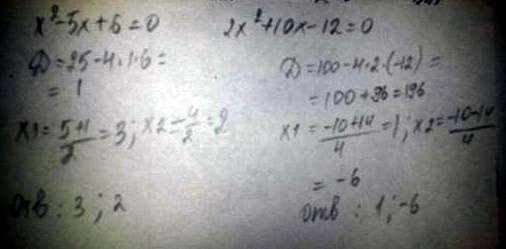 x²-5x+6=0
D=25-4·1·6=
=1
x1=5+1/2=3; x2=4/2=2
отв: 3; 2
2x²+10x-12=0
D=100-4·2·(-12)=
=100+96=196
x1=-10+14/4=1; x2=-10-14/4
=-6
отв: 1; -6